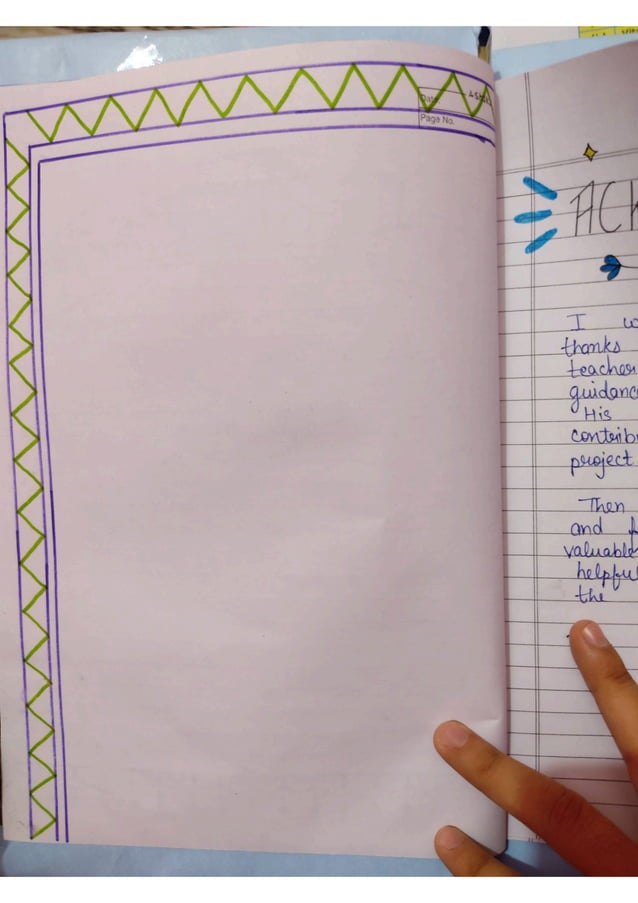 Page No.
ACK
I
thanks
teacher
guidanc
His
contrib
project
Then
and
valuable
helpful
the